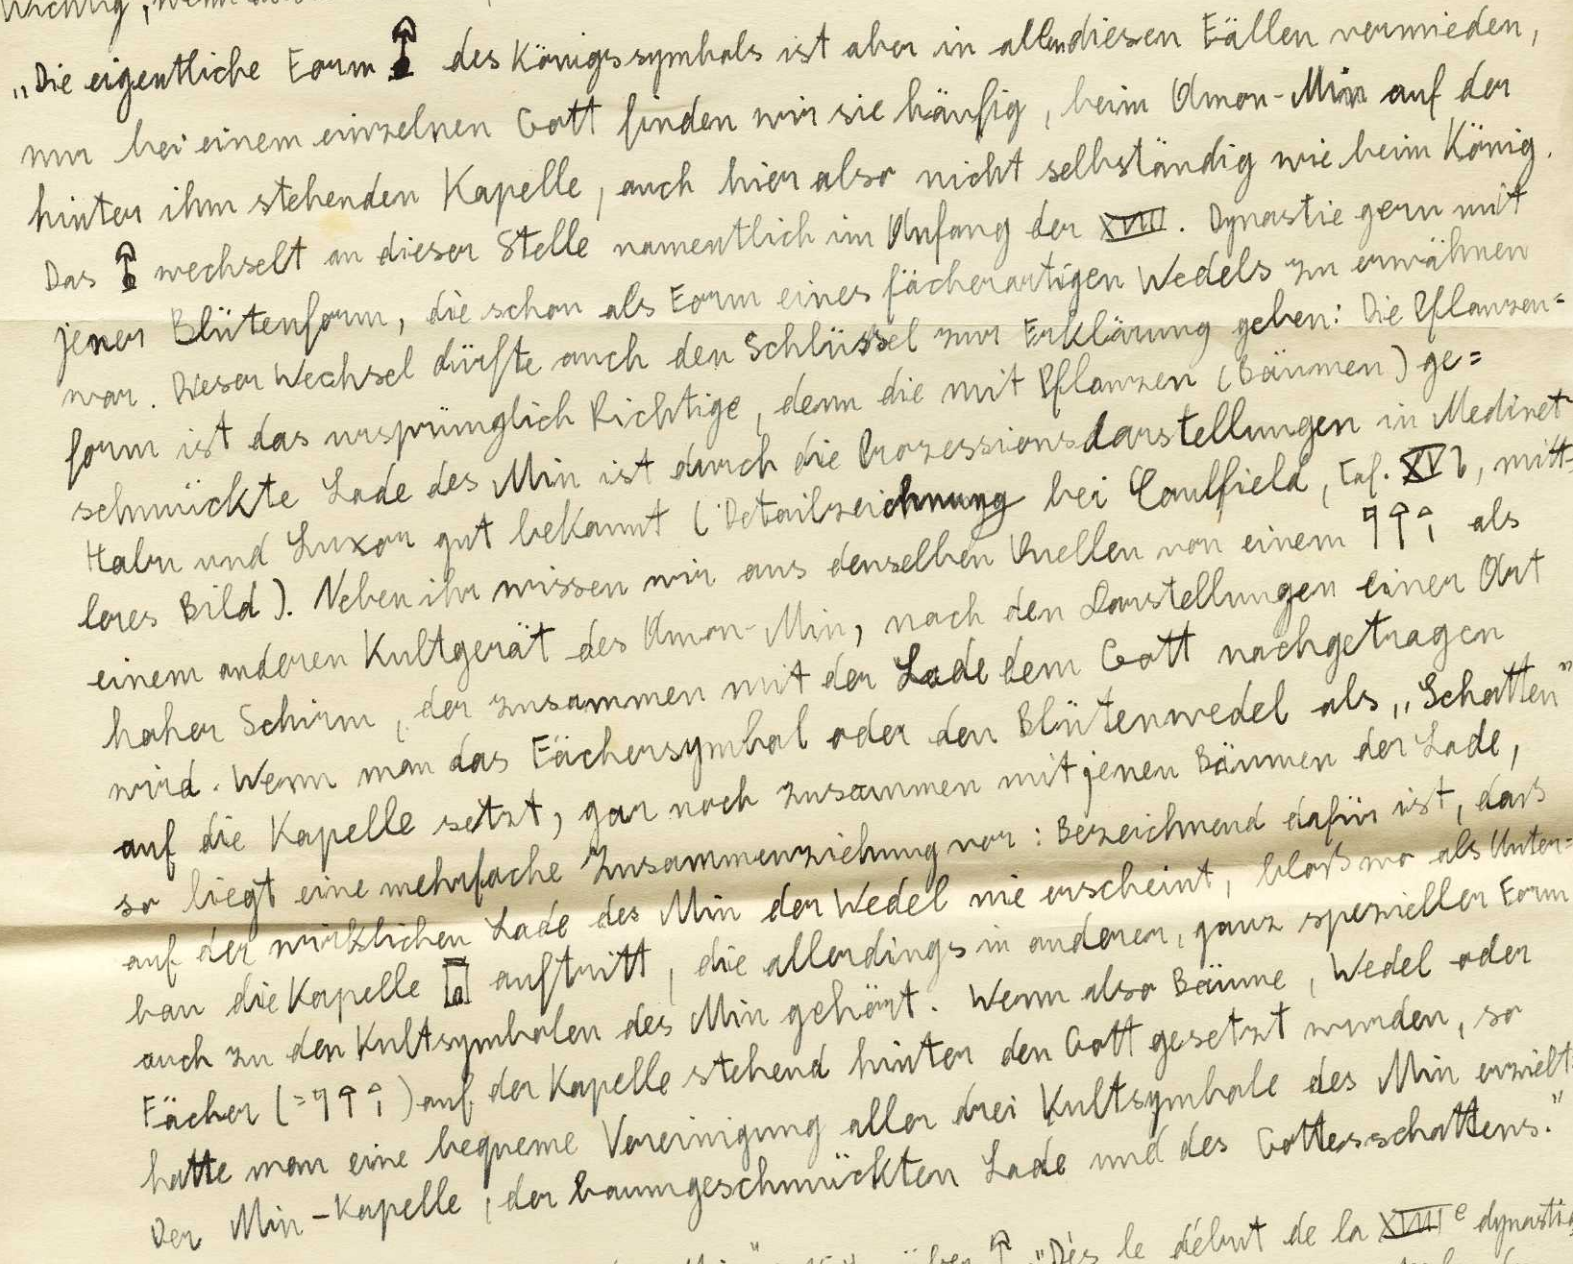 „Die eigentliche Form 𓋺 des Königssymbols ist aber in allen diesen Fällen vermieden,
nur bei einem einzelnen Gott finden wir sie häufig, beim Amon-Min auf der
hinter ihm stehenden Kapelle, auch hier also nicht selbständig wie beim König.
Das 𓋺 wechselt an dieser Stelle namentlich im Anfang der XVIII. Dynastie gern mit
jener Blütenform, die schon als Form eines fächerartigen Wedels zu erwähnen
war. Dieser Wechsel dürfte auch den Schlüssel zur Erklärung geben: Die Pflanzen=
form ist das ursprünglich Richtige, denn die mit Pflanzen (Bäumen) ge=
schmückte Lade des Min ist durch die Prozessionsdarstellungen in Medinet
Habu und Luxor gut bekannt (Detailzeichnung bei Caulfield, Taf. XVI, mitt-
leres Bild). Neben ihr wissen wir aus denselben Quellen von einem als
einem anderen Kultgerät des Amon-Min, nach den Darstellungen einer Art
hoher Schirm, der zusammen mit der Lade dem Gott nachgetragen
wird. Wenn man das Fächersymbol oder den Blütenwedel als „Schatten"
auf die Kapelle setzt, gar noch zusammen mit jenen Bäumen der Lade,
so liegt eine mehrfache Zusammenziehung vor: Bezeichnend dafür ist, dass
auf der wirklichen Lade des Min der Wedel nie erscheint, bloß wo als Unter=
bau die Kapelle auftritt, die allerdings in anderer, ganz spezieller Form
auch zu den Kultsymbolen des Min gehört. Wenn also Bäume, Wedel oder
Fächer (= ) auf der Kapelle stehend hinter den Gott gesetzt wurden, so
hatte man eine bequeme Vereinigung aller drei Kultsymbole des Min erzielt:
Der Min-Kapelle, der baumgeschmückten Lade und des Gottesschattens."
„Dès le début de la XVIIIe dynastie